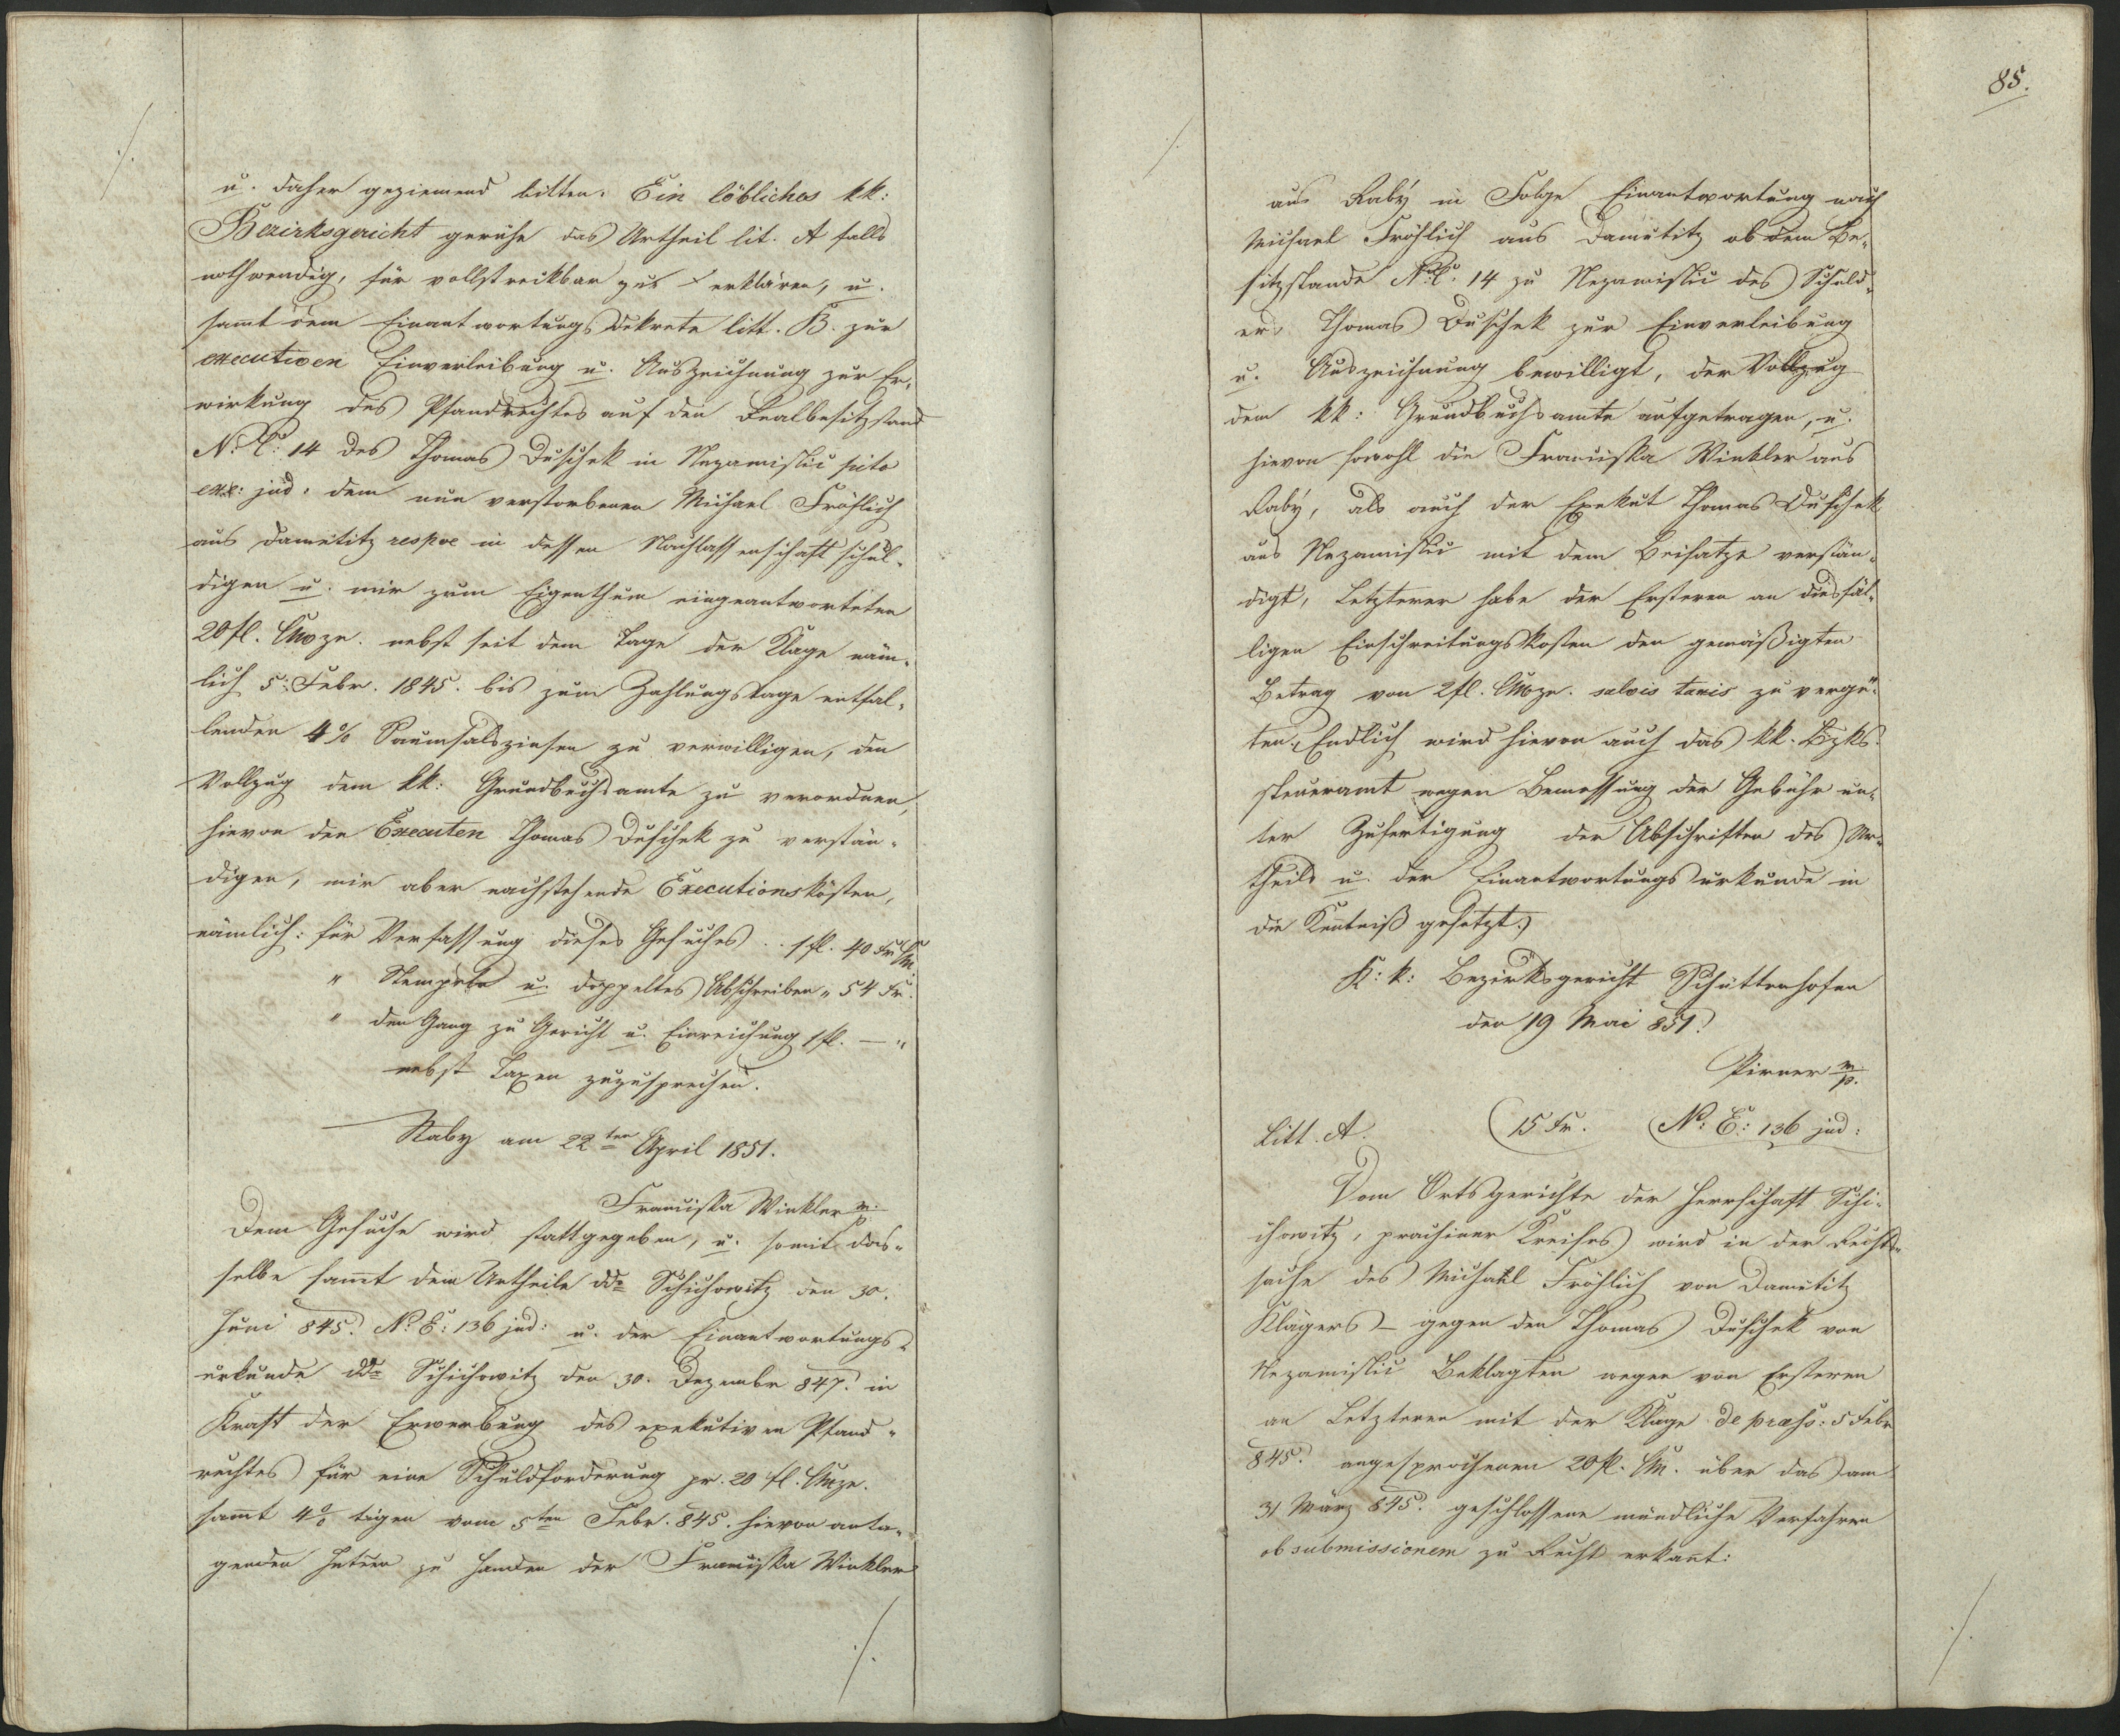 u. daher geziemend bitten: Ein löbliches kk:
Bezirksgericht geruhe das Urtheil lit. A falls
nothwendig, für vollstreckbar zu erklären, u.
sammt dem Einantwortungsdekrete litt. B. zur
executiven Einverleibung u. Auszeichnung zur Er-
wirkung des Pfandrechtes auf den Realbesitzstand
N: C: 14 des Thomas Duschek in Nezamislic
exe: jud: dem nun verstorbenen Michael Fröhlich
aus Damětitz respve in dessen Nachlassenschaft schul-
digen u. mir zum Eigenthum eingeantworteten
20 fl. CMze. nebst seit dem Tage der Klage näm-
lich 5: Febr. 1845. bis zum Zahlungstage entfal-
lenden 4% Saumsalszinsen zu verwilligen, den
Vollzug dem kk: Grundbuchsamte zu verordnen,
hievon den Executen Thomas Duschek zu verstän-
digen, mir aber nachstehende Executionskösten,
nämlich: für Verfassung dieses Gesuches .. 1 fl. 40 Kr CM.
" Stempeln u. doppeltes Abschreiben „ 54 Kr.
" den Gang zu Gericht u. Einreichung 1 fl. — "
nebst Taxen zuzusprechen.
Raby am 22ten April 1851.
Franciska Winkler m.p.
Dem Gesuche wird stattgegeben, u. somit das-
selbe sammt dem Urtheile ddo Schichowitz den 30.
Juni 845. No E: 136 jud: u. der Einantwortungs-
urkunde ddo Schichowitz den 30. Dezember 847. in
Kraft der Erwerbung des exekutiven Pfand-
rechtes für eine Schuldforderung pr. 20 fl. CMze.
sammt 4% tigen vom 5ten Febr. 845. hievon
zu Handen der Franciska Winkler
./.
85.
aus Raby in Folge Einantwortung nach
Michael Fröhlich aus Damětitz ob dem Be-
sitzstande N.C. 14 zu Nezamislic des Schuld-
ers Thomas Duschek zur Einverleibung
u. Auszeichnung bewilligt, der Vollzug
dem kk: Grundbuchsamte aufgetragen, u.
hievon sowohl die Franciska Winkler aus
Raby, als auch der Exekut Thomas Duschek
aus Nezamislic mit dem Beisatze verstän-
digt, Letzterer habe der Ersteren an diesfäl-
ligen Einschreitungskosten den gemäßigten
Betrag von 2 fl. CMze. salvis taxis zu vergü-
ten. Endlich wird hievon auch das kk. Bzks-
steueramt wegen Bemessung der Gebühr un-
ter Zufertigung der Abschriften des Ur-
theils u. der Einantwortungsurkunde in
die Kenntniß gesetzt.
K: k: Bezirksgericht Schüttenhofen
den 19 Mai 851.
Pirner m/p.
Litt. A. 15 Kr. No: E: 136 jud:
Vom Ortsgerichte der Herrschaft Schi-
chowitz, prachiner Kreises wird in der Rechts-
sache des Michael Fröhlich von Damětitz
Klägers – gegen den Thomas Duschek von
Nezamislic Beklagten wegen von Ersteren
an Letzteren mit der Klage de praes: 5 Febr
845. angesprochenen 20 fl. CM. über das am
31 März 845. geschlossene mündliche Verfahren
ob submissionem zu Recht erkannt:
./.